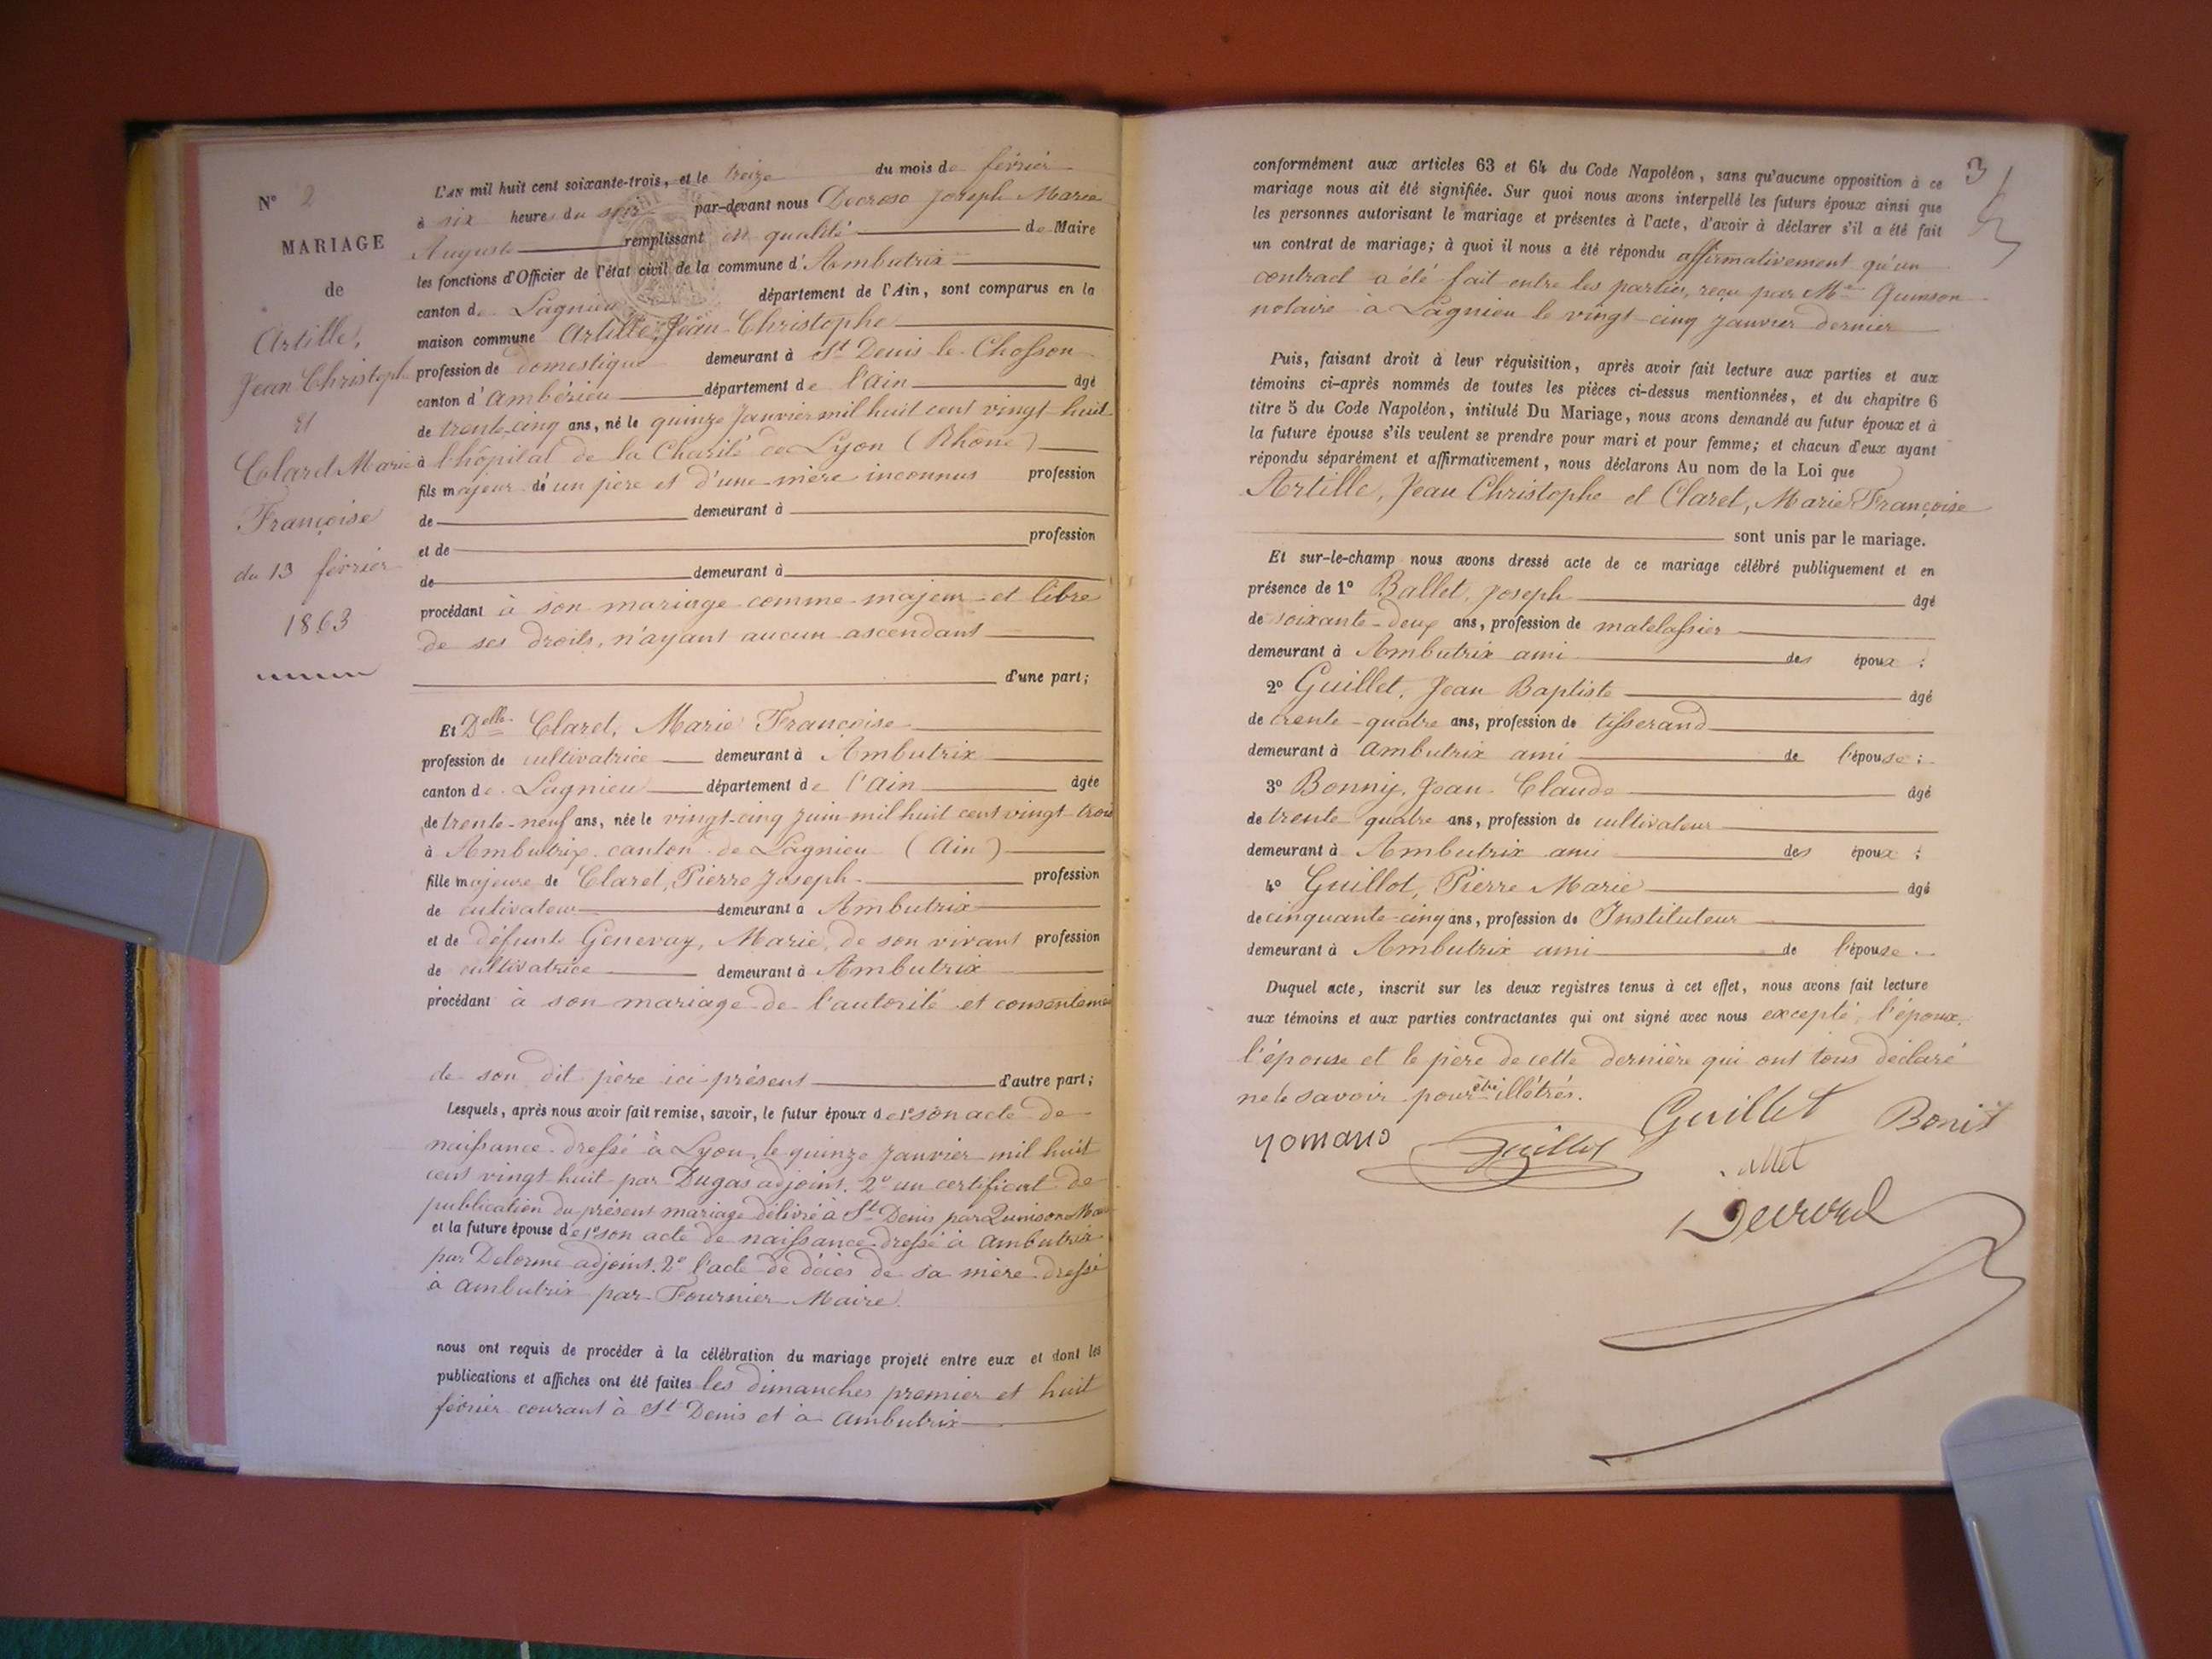 N° 2
MARIAGE
de
Artille,
Jean Christophe
et
Claret Marie
Françoise
du 13 février
1863
L'AN mil huit cent soixante-trois, et le treize du mois de février
à six heures du soir par-devant nous Decroso Joseph Marie
Auguste remplissant en qualité de Maire
les fonctions d'Officier de l'état civil de la commune d'Ambutrix
canton de Lagnieu département de l'Ain, sont comparus en la
maison commune Artille, Jean Christophe
profession de domestique demeurant à St Denis le Chosson
canton d'Ambérieu département de l'Ain âgé
de trente-cinq ans, né le quinze Janvier mil huit cent vingt huit
à l'hôpital de la Charité de Lyon (Rhône)
fils majeur d'un père et d'une mère inconnus profession
de demeurant à
et de profession
de demeurant à
procédant à son mariage comme majeur et libre
de ses droits, n'ayant aucun ascendant
d'une part;
Et Delle Claret, Marie Françoise
profession de cultivatrice demeurant à Ambutrix
canton de Lagnieu département de l'Ain âgée
de trente-neuf ans, née le vingt-cinq Juin mil huit cent vingt trois
à Ambutrix canton de Lagnieu (Ain)
fille majeure de Claret, Pierre Joseph profession
de cultivateur demeurant à Ambutrix
et de défunte Genevay, Marie, de son vivant profession
de cultivatrice demeurant à Ambutrix
procédant à son mariage de l'autorité et consenteme
de son dit père ici présent d'autre part;
Lesquels, après nous avoir fait remise, savoir, le futur époux de 1° son acte de
naissance dressé à Lyon, le quinze Janvier mil huit
cent vingt huit par Dugas adjoint. 2° un certificat de
publication du présent mariage délivré à St Denis par Quinson Maire
et la future épouse de 1° son acte de naissance dressé à Ambutrix
par Delorme adjoint. 2° l'acte de décès de sa mère dressé
à Ambutrix par Fournier Maire.
nous ont requis de procéder à la célébration du mariage projeté entre eux et dont les
publications et affiches ont été faites les dimanches premier et huit
février courant à St Denis et à Ambutrix
3
conformément aux articles 63 et 64 du Code Napoléon, sans qu'aucune opposition à ce
mariage nous ait été signifiée. Sur quoi nous avons interpellé les futurs époux ainsi que
les personnes autorisant le mariage et présentes à l'acte, d'avoir à déclarer s'il a été fait
un contrat de mariage; à quoi il nous a été répondu affirmativement qu'un
contract a été fait entre les parties, reçu par Me Quinson
notaire à Lagnieu le vingt-cinq Janvier dernier
Puis, faisant droit à leur réquisition, après avoir fait lecture aux parties et aux
témoins ci-après nommés de toutes les pièces ci-dessus mentionnées, et du chapitre 6
titre 5 du Code Napoléon, intitulé Du Mariage, nous avons demandé au futur époux et à
la future épouse s'ils veulent se prendre pour mari et pour femme; et chacun d'eux ayant
répondu séparément et affirmativement, nous déclarons Au nom de la Loi que
Artille, Jean Christophe et Claret, Marie Françoise
sont unis par le mariage.
Et sur-le-champ nous avons dressé acte de ce mariage célébré publiquement et en
présence de 1° Ballet, Joseph âgé
de soixante-deux ans, profession de matelassier
demeurant à Ambutrix ami des époux;
2° Guillet, Jean Baptiste âgé
de trente-quatre ans, profession de tisserand
demeurant à Ambutrix ami de l'épouse;
3° Bonny, Jean Claude âgé
de trente quatre ans, profession de cultivateur
demeurant à Ambutrix ami des époux;
4° Guillot, Pierre Marie âgé
de cinquante-cinq ans, profession de Instituteur
demeurant à Ambutrix ami de l'épouse.
Duquel acte, inscrit sur les deux registres tenus à cet effet, nous avons fait lecture
aux témoins et aux parties contractantes qui ont signé avec nous excepté, l'époux,
l'épouse et le père de cette dernière qui ont tous déclaré
ne le savoir pour être illétrés.
Guillet Bonit
Guillot